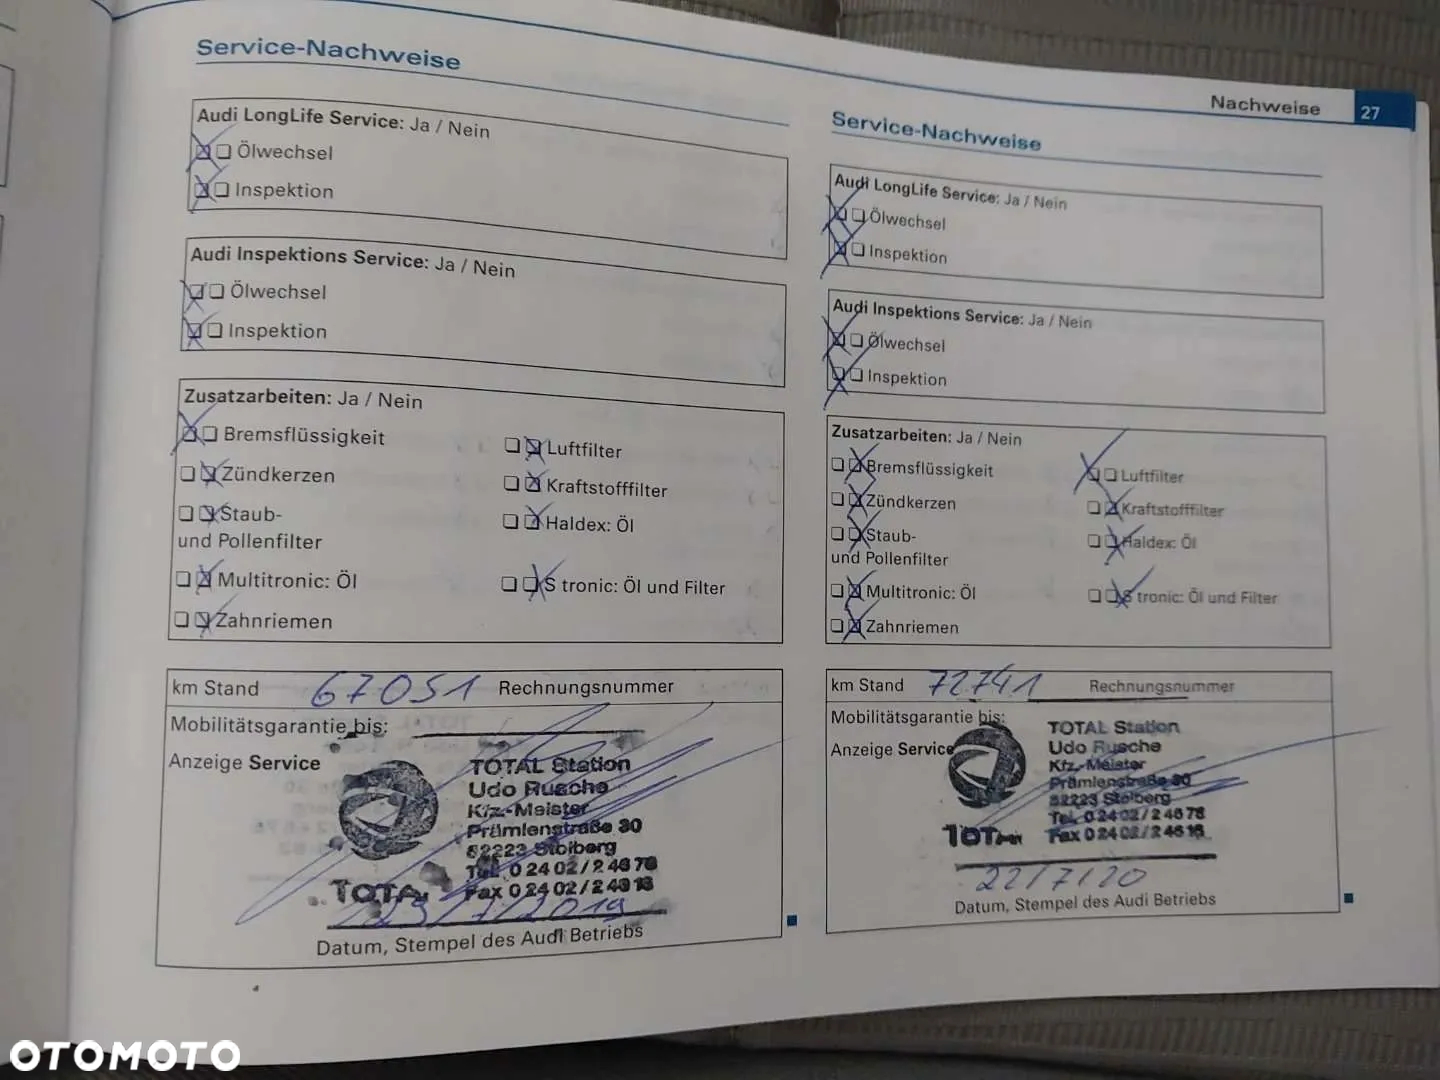 Nachweise 27
Service-Nachweise
Audi LongLife Service: Ja / Nein
Ölwechsel
Inspektion
Audi Inspektions Service: Ja / Nein
Ölwechsel
Inspektion
Zusatzarbeiten: Ja / Nein
Bremsflüssigkeit
Luftfilter
Zündkerzen
Kraftstofffilter
Staub-
und Pollenfilter
Haldex: Öl
Multitronic: Öl
S tronic: Öl und Filter
Zahnriemen
km Stand 67051 Rechnungsnummer
Mobilitätsgarantie bis:
Anzeige Service
TOTAL Station
Udo Rusche
Kfz.-Meister
Prämienstraße 30
52223 Stolberg
Tel. 0 24 02 / 2 46 78
Fax 0 24 02 / 2 46 16
TOTAL
23/7/2019
Datum, Stempel des Audi Betriebs
Service-Nachweise
Audi LongLife Service: Ja / Nein
Ölwechsel
Inspektion
Audi Inspektions Service: Ja / Nein
Ölwechsel
Inspektion
Zusatzarbeiten: Ja / Nein
Bremsflüssigkeit
Luftfilter
Zündkerzen
Kraftstofffilter
Staub-
und Pollenfilter
Haldex: Öl
Multitronic: Öl
S tronic: Öl und Filter
Zahnriemen
km Stand 72741 Rechnungsnummer
Mobilitätsgarantie bis:
Anzeige Service
TOTAL Station
Udo Rusche
Kfz.-Meister
Prämienstraße 30
52223 Stolberg
Tel. 0 24 02 / 2 46 78
Fax 0 24 02 / 2 46 16
TOTAL
22/7/20
Datum, Stempel des Audi Betriebs
OTOMOTO